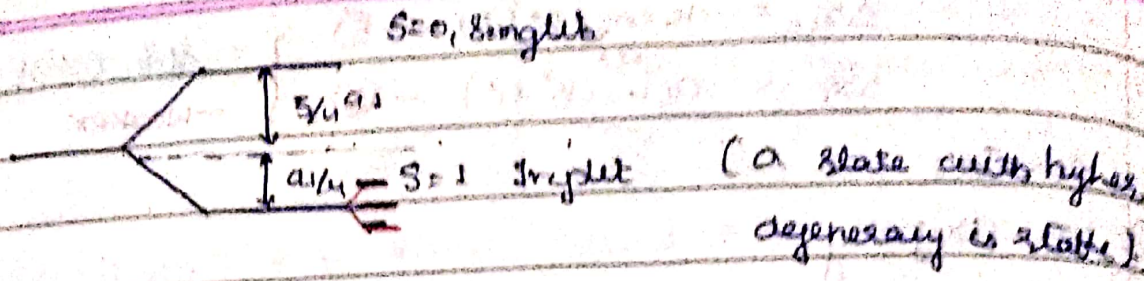 S=0, Singlet
a1/4 S=1 Triplet (a state with higher
degeneracy is